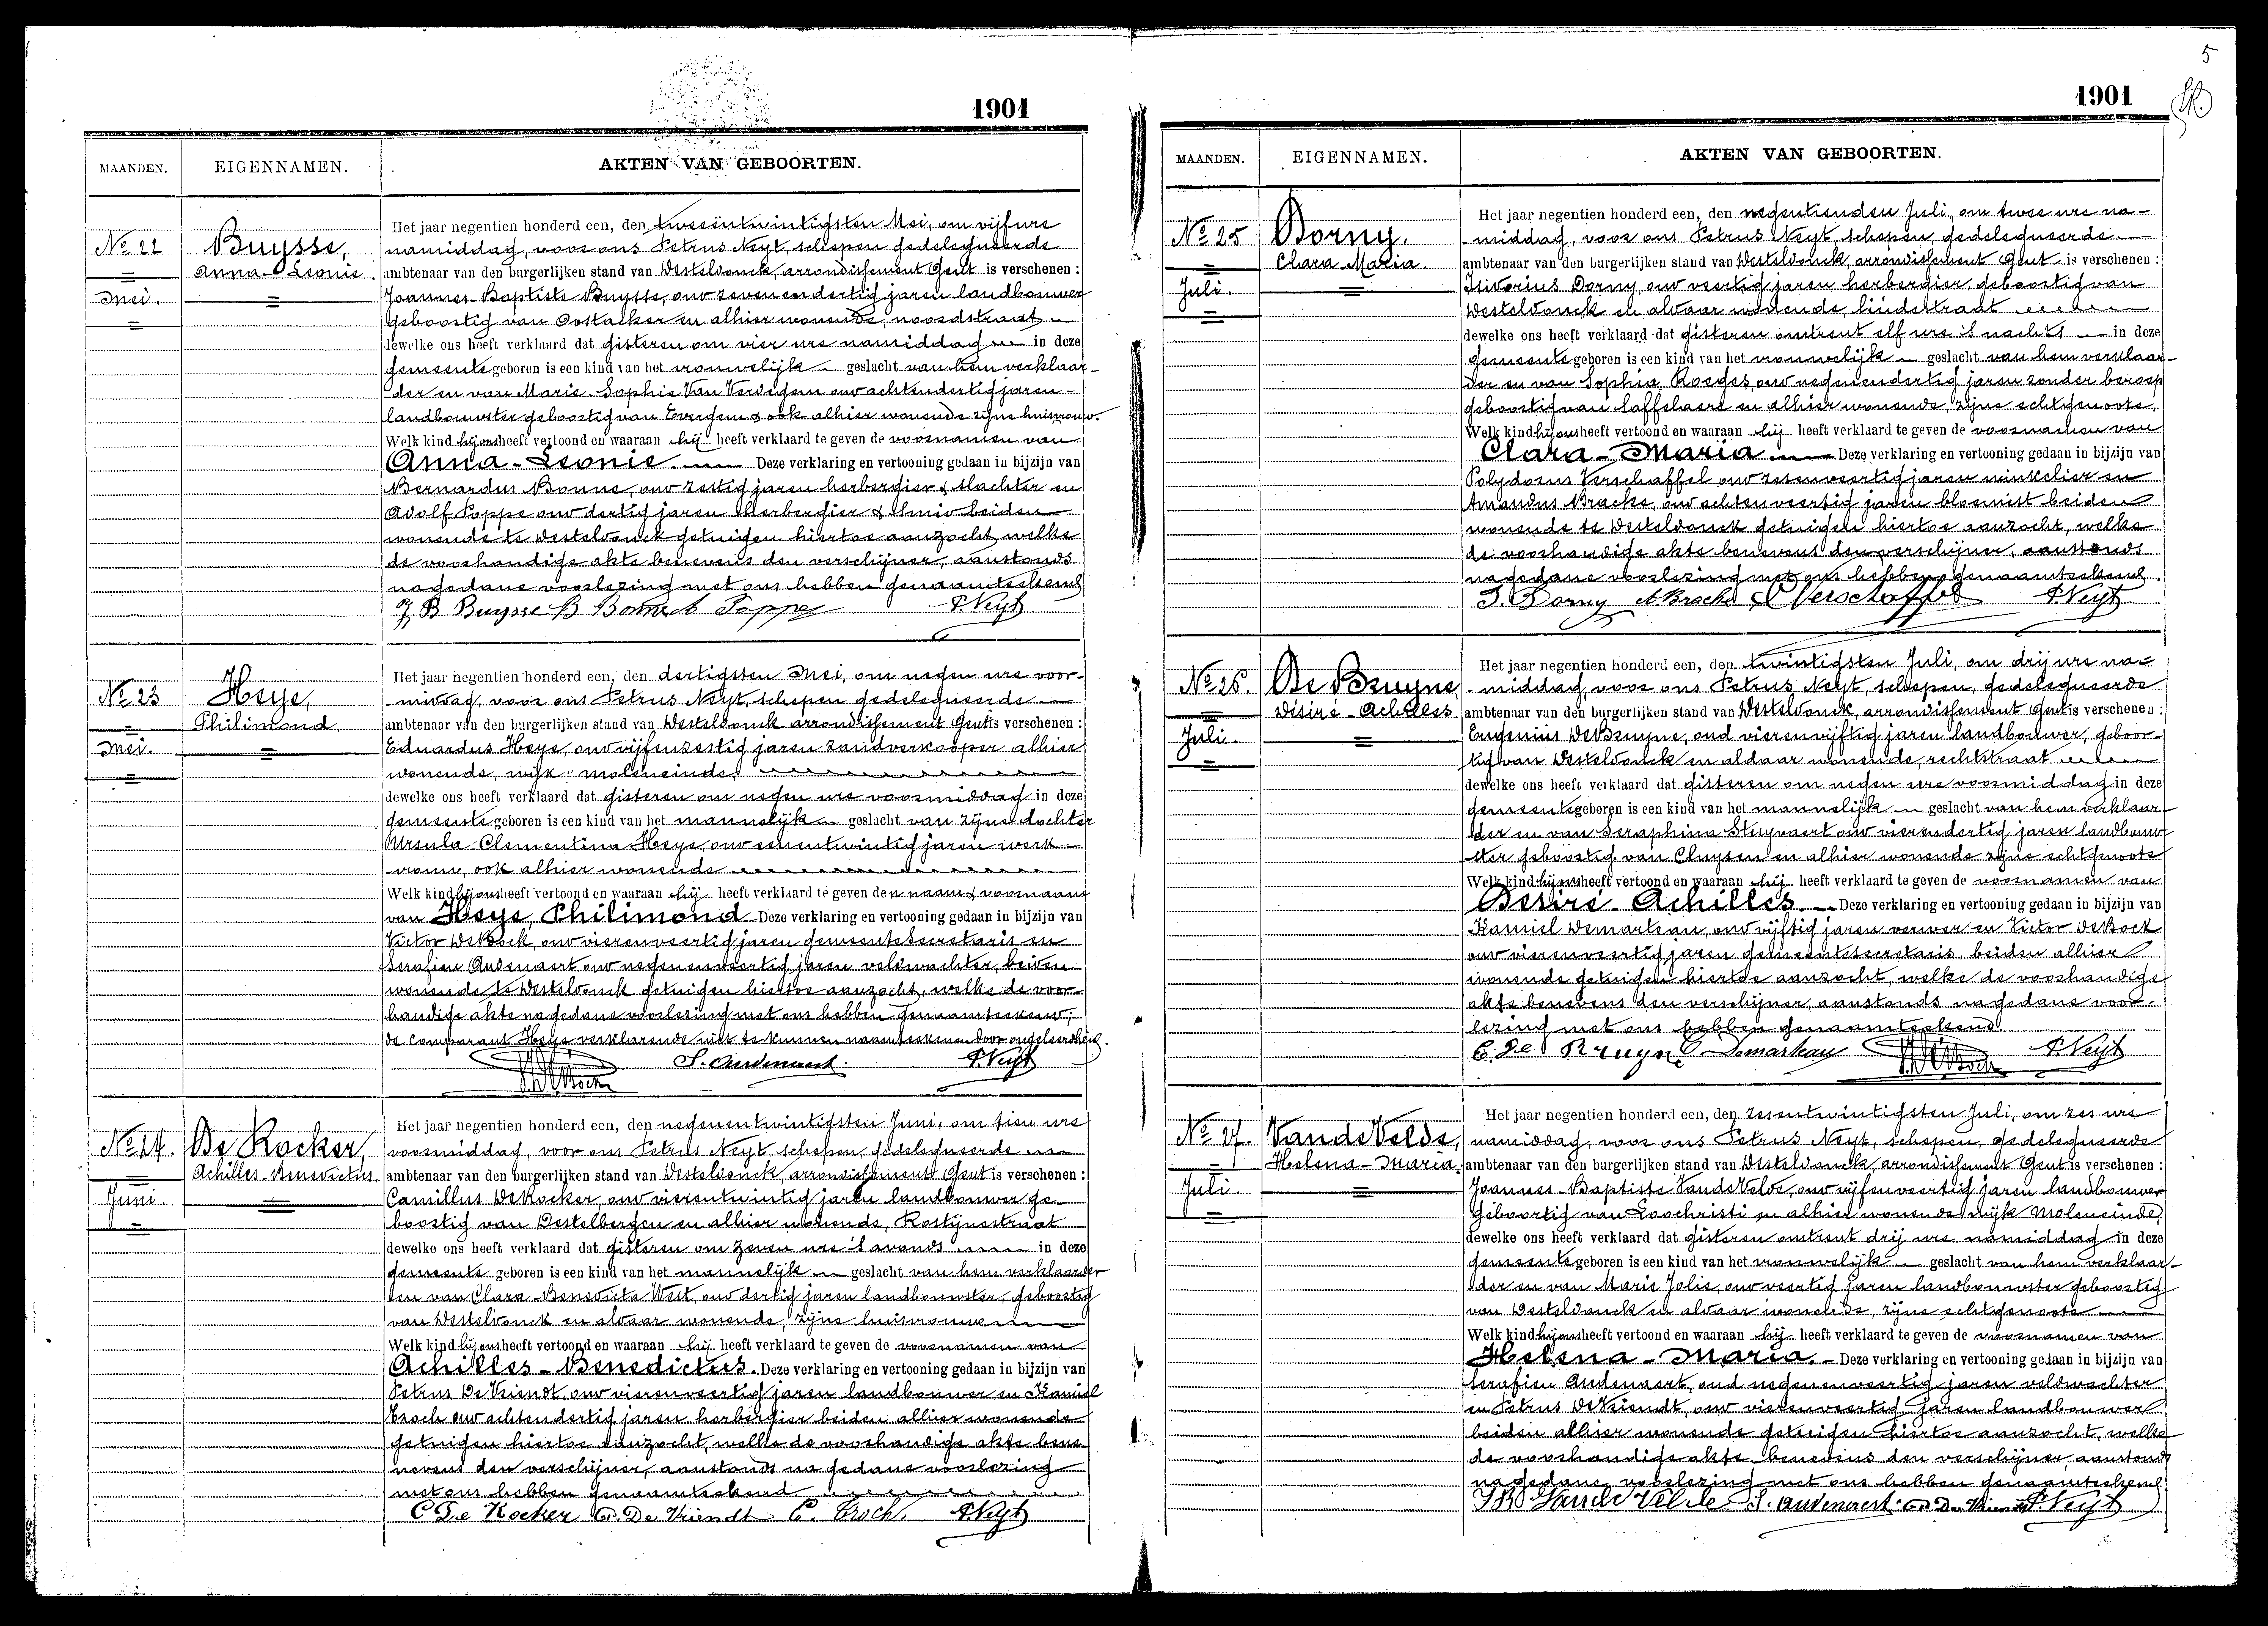 1901
MAANDEN. EIGENNAMEN. AKTEN VAN GEBOORTEN.
No 22
Mei.
Buysse,
Anna-Leonie.
Het jaar negentien honderd een, den tweeëntwintigsten Mei, om vijf ure
namiddag, voor ons Petrus Neyt, schepen gedelegueerde
ambtenaar van den burgerlijken stand van Desteldonck, arrondissement Gent is verschenen :
Joannes-Baptiste Buysse, oud zevenendertig jaren landbouwer
geboortig van Oostacker en alhier wonende, noordstraat
dewelke ons heeft verklaard dat gisteren om vier ure namiddag in deze
gemeente geboren is een kind van het vrouwelijk geslacht van hem verklaar-
der en van Marie-Sophie Van Vervigem oud achtendertig jaren
landbouwster geboortig van Evergem & ook alhier wonende zijne huisvrouw.
Welk kind hij ons heeft vertoond en waaraan hij heeft verklaard te geven de voornamen van
Anna-Leonie. Deze verklaring en vertooning gedaan in bijzijn van
Bernardus Bonne, oud zestig jaren herbergier & slachter en
Adolf Poppe oud dertig jaren herbergier & smid beiden
wonende te Desteldonck getuigen hiertoe aanzocht, welke
de voorhandige akte benevens den verschijner, aanstonds
na gedane voorlezing met ons hebben genaamteekend
J B Buysse B Bonne A Poppe P. Neyt
No 23
Mei.
Heye,
Philimond.
Het jaar negentien honderd een, den dertigsten Mei, om negen ure voor-
middag, voor ons Petrus Neyt, schepen gedelegueerde
ambtenaar van den burgerlijken stand van Desteldonck arrondissement Gent is verschenen :
Eduardus Heye, oud vijfenzestig jaren zandverkooper alhier
wonende, wijk moleneinde,
dewelke ons heeft verklaard dat gisteren om negen ure voormiddag in deze
gemeente geboren is een kind van het mannelijk geslacht van zijne dochter
Ursula-Clementina Heye, oud eenentwintig jaren werk-
vrouw, ook alhier wonende
Welk kind hij ons heeft vertoond en waaraan hij heeft verklaard te geven den naam & voornaam
van Heye, Philimond Deze verklaring en vertooning gedaan in bijzijn van
Victor DeBock, oud vierenveertig jaren gemeentesecretaris en
Serafien Audenaert oud negenenveertig jaren veldwachter, beiden
wonende te Desteldonck getuigen hiertoe aanzocht, welke de voor-
handige akte na gedane voorlezing met ons hebben genaamteekend;
de comparant Heye verklarende niet te kunnen naamteekenen door ongeleerdheid.
S. Audenaert. P. Neyt
V. DeBock
No 24.
Juni.
De Kocker,
Achilles-Benedictus.
Het jaar negentien honderd een, den negenentwintigsten Juni, om tien ure
voormiddag, voor ons Petrus Neyt, schepen, gedelegueerde
ambtenaar van den burgerlijken stand van Desteldonck, arrondissement Gent is verschenen :
Camillus DeKocker, oud vierentwintig jaren landbouwer ge-
boortig van Destelbergen en alhier wonende, Rostijnestraat
dewelke ons heeft verklaard dat gisteren om zeven ure 's avonds in deze
gemeente geboren is een kind van het mannelijk geslacht van hem verklaarder
en van Clara-Benedicta West, oud dertig jaren landbouwster, geboortig
van Desteldonck en aldaar wonende, zijne huisvrouwe
Welk kind hij ons heeft vertoond en waaraan hij heeft verklaard te geven de voornamen van
Achilles-Benedictus. Deze verklaring en vertooning gedaan in bijzijn van
Petrus De Vriendt, oud vierenveertig jaren landbouwer en Kamiel
Troch oud achtendertig jaren herbergier beiden alhier wonende
getuigen hiertoe aanzocht, welke de voorhandige akte bene-
nevens den verschijner, aanstonds na gedane voorlezing
met ons hebben genaamteekend
C De Kocker P. De Vriendt C. Troch. P. Neyt
5
1901
MAANDEN. EIGENNAMEN. AKTEN VAN GEBOORTEN.
No 25
Juli.
Dorny.
Clara-Maria.
Het jaar negentien honderd een, den negentienden Juli, om twee ure na-
middag, voor ons Petrus Neyt, schepen, gedelegueerde
ambtenaar van den burgerlijken stand van Desteldonck, arrondissement Gent is verschenen :
Isidorius Dorny, oud veertig jaren herbergier geboortig van
Desteldonck en aldaar wonende, lindestraat
dewelke ons heeft verklaard dat gisteren omtrent elf ure 's nachts in deze
gemeente geboren is een kind van het vrouwelijk geslacht van hem verklaar-
der en van Sophia Roeges oud negenendertig jaren zonder beroep
geboortig van Saffelaere en alhier wonende, zijne echtgenoote.
Welk kind hij ons heeft vertoond en waaraan hij heeft verklaard te geven de voornamen van
Clara-Maria Deze verklaring en vertooning gedaan in bijzijn van
Polydorus Verschaffel oud zesenveertig jaren winkelier en
Amandus Bracke, oud achtenveertig jaren bloemist beiden
wonende te Desteldonck getuigen hiertoe aanzocht, welke
de voorhandige akte benevens den verschijner, aanstonds
na gedane voorlezing met ons hebben genaamteekend.
I. Dorny A. Bracke P Verschaffel P. Neyt
No 26.
Juli.
De Bruyne,
Désiré-Achilles.
Het jaar negentien honderd een, den twintigsten Juli, om drij ure na-
middag voor ons Petrus Neyt, schepen, gedelegueerde
ambtenaar van den burgerlijken stand van Desteldonck, arrondissement Gent is verschenen :
Eugenius DeBruyne, oud vierenvijftig jaren landbouwer, geboor-
tig van Desteldonck en aldaar wonende, rechtstraat
dewelke ons heeft verklaard dat gisteren om negen ure voormiddag in deze
gemeente geboren is een kind van het mannelijk geslacht van hem verklaar-
der en van Seraphina Stuyvaert oud vierendertig jaren landbouw-
ster geboortig van Cluysen en alhier wonende zijne echtgenoote
Welk kind hij ons heeft vertoond en waaraan hij heeft verklaard te geven de voornamen van
Desiré-Achilles. Deze verklaring en vertooning gedaan in bijzijn van
Kamiel Demarteau, oud vijftig jaren verwer en Victor DeBock
oud vierenveertig jaren gemeentesecretaris, beiden alhier
wonende getuigen hiertoe aanzocht, welke de voorhandige
akte benevens den verschijner, aanstonds na gedane voor-
lezing met ons hebben genaamteekend
E. De Bruyne C Demarteau V. DeBock P. Neyt
No 27.
Juli.
VandeVelde,
Helena-Maria.
Het jaar negentien honderd een, den zesentwintigsten Juli, om zes ure
namiddag, voor ons Petrus Neyt, schepen, gedelegueerde
ambtenaar van den burgerlijken stand van Desteldonck, arrondissement Gent is verschenen :
Joannes-Baptiste VandeVelde, oud vijfenveertig jaren landbouwer
geboortig van Loochristi en alhier wonende wijk Moleneinde,
dewelke ons heeft verklaard dat gisteren omtrent drij ure namiddag in deze
gemeente geboren is een kind van het vrouwelijk geslacht van hem verklaar-
der en van Marie Jolie, oud veertig jaren landbouwster geboortig
van Desteldonck en aldaar wonende, zijne echtgenoote
Welk kind hij ons heeft vertoond en waaraan hij heeft verklaard te geven de voornamen van
Helena-Maria. Deze verklaring en vertooning gedaan in bijzijn van
Serafien Audenaert, oud negenenveertig jaren veldwachter
en Petrus DeVriendt, oud vierenveertig jaren landbouwer
beiden alhier wonende getuigen hiertoe aanzocht, welke
de voorhandige akte benevens den verschijner, aanstonds
na gedane voorlezing met ons hebben genaamteekend.
JB Van de Velde S. Audenaert P. De Vriendt P. Neyt